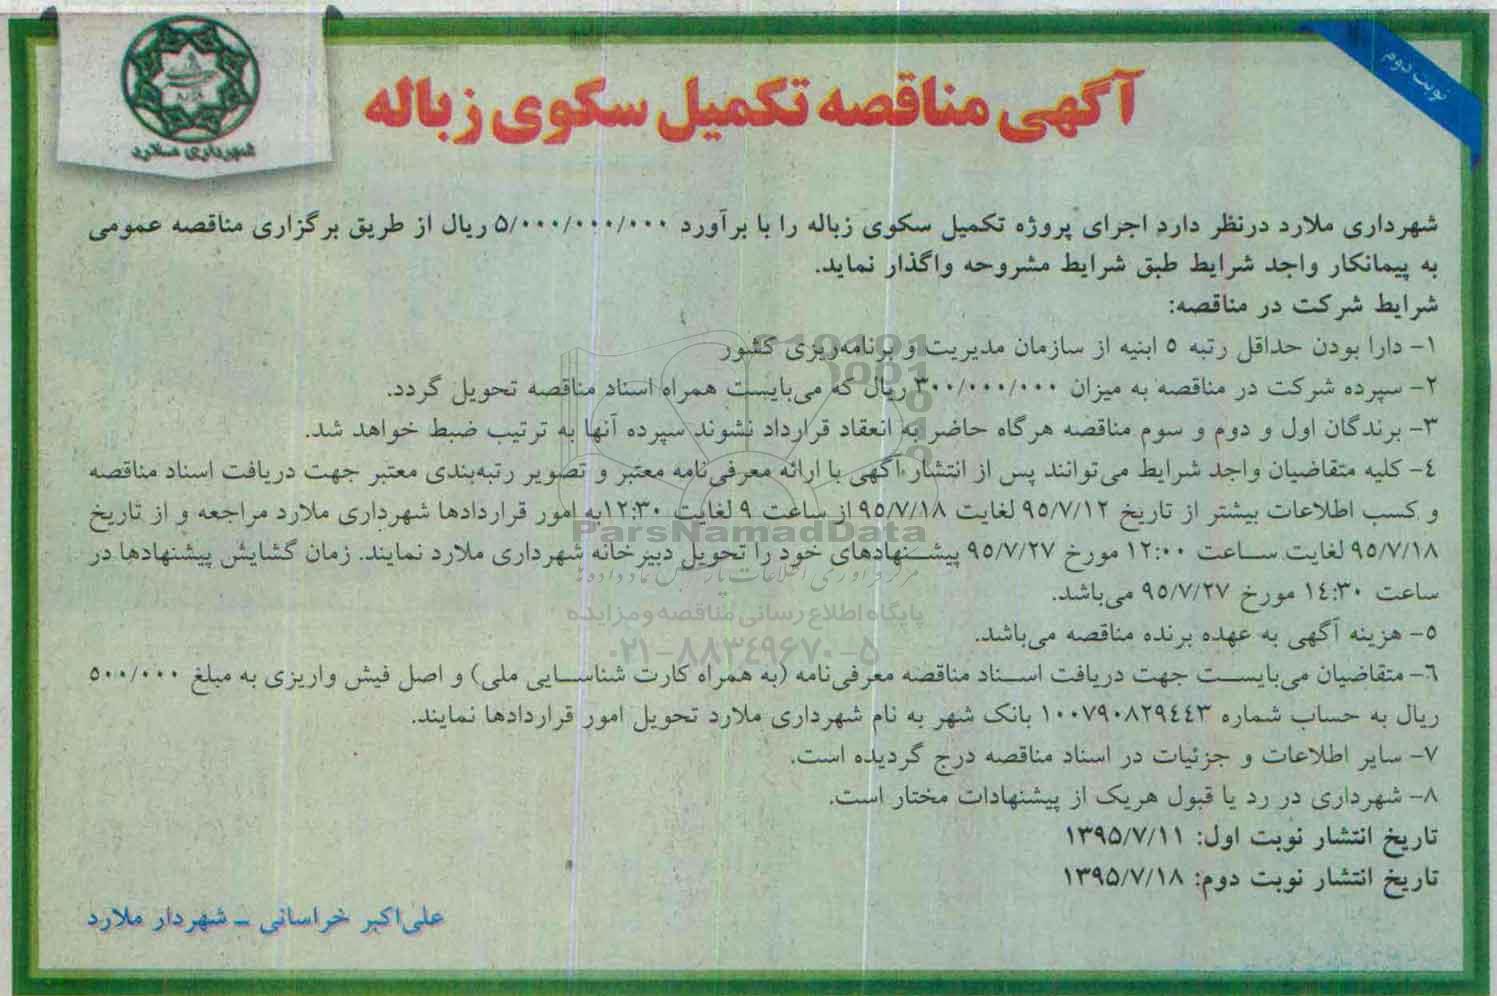 نوبت دوم
شهرداری ملارد
آگهی مناقصه تکمیل سکوی زباله
شهرداری ملارد درنظر دارد اجرای پروژه تکمیل سکوی زباله را با برآورد ۵/۰۰۰/۰۰۰/۰۰۰ ریال از طریق برگزاری مناقصه عمومی
به پیمانکار واجد شرایط طبق شرایط مشروحه واگذار نماید.
شرایط شرکت در مناقصه:
۱- دارا بودن حداقل رتبه ۵ ابنیه از سازمان مدیریت و برنامه‌ریزی کشور
۲- سپرده شرکت در مناقصه به میزان ۳۰۰/۰۰۰/۰۰۰ ریال که می‌بایست همراه اسناد مناقصه تحویل گردد.
۳- برندگان اول و دوم و سوم مناقصه هرگاه حاضر به انعقاد قرارداد نشوند سپرده آنها به ترتیب ضبط خواهد شد.
۴- کلیه متقاضیان واجد شرایط می‌توانند پس از انتشار آگهی با ارائه معرفی‌نامه معتبر و تصویر رتبه‌بندی معتبر جهت دریافت اسناد مناقصه
و کسب اطلاعات بیشتر از تاریخ ۹۵/۷/۱۲ لغایت ۹۵/۷/۱۸ از ساعت ۹ لغایت ۱۲:۳۰ به امور قراردادها شهرداری ملارد مراجعه و از تاریخ
۹۵/۷/۱۸ لغایت ساعت ۱۲:۰۰ مورخ ۹۵/۷/۲۷ پیشنهادهای خود را تحویل دبیرخانه شهرداری ملارد نمایند. زمان گشایش پیشنهادها در
ساعت ۱۴:۳۰ مورخ ۹۵/۷/۲۷ می‌باشد.
۵- هزینه آگهی به عهده برنده مناقصه می‌باشد.
۶- متقاضیان می‌بایست جهت دریافت اسناد مناقصه معرفی‌نامه (به همراه کارت شناسایی ملی) و اصل فیش واریزی به مبلغ ۵۰۰/۰۰۰
ریال به حساب شماره ۱۰۰۷۹۰۸۲۹۴۴۳ بانک شهر به نام شهرداری ملارد تحویل امور قراردادها نمایند.
۷- سایر اطلاعات و جزئیات در اسناد مناقصه درج گردیده است.
۸- شهرداری در رد یا قبول هریک از پیشنهادات مختار است.
تاریخ انتشار نوبت اول: ۱۳۹۵/۷/۱۱
تاریخ انتشار نوبت دوم: ۱۳۹۵/۷/۱۸
علی‌اکبر خراسانی ـ شهردار ملارد
ParsNamadData
مرکز فرآوری اطلاعات پارس نماد داده ها
پایگاه اطلاع رسانی مناقصه و مزایده
۰۲۱-۸۸۳۴۹۶۷۰-۵